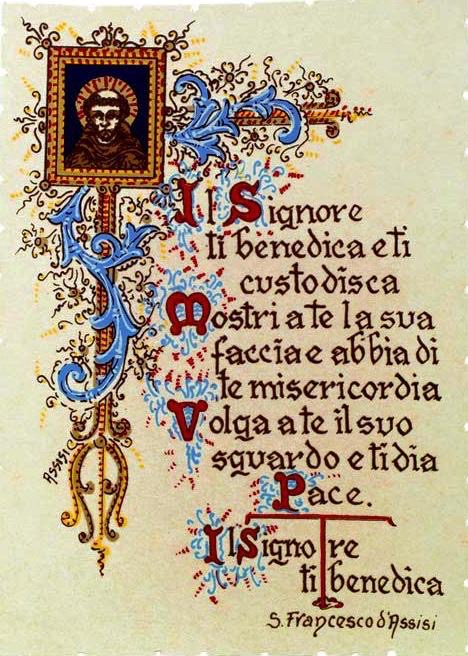 Il Signore
ti benedica e ti
custodisca
Mostri a te la sua
faccia e abbia di
te misericordia
Volga a te il suo
sguardo e ti dia
Pace.
Il Signore
ti benedica
S. Francesco d'Assisi
Assisi